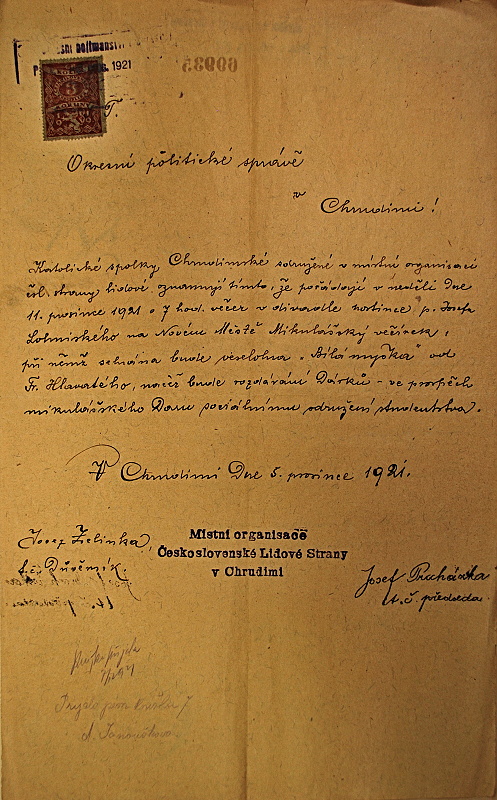 1921
5
Okresní politické správě
v
Chrudimi!
Katolické spolky Chrudimské sdružené v místní organisaci
čsl. strany lidové, oznamují tímto, že pořádají v neděli dne
11. prosince 1921 o 7 hod. večer v divadle hostince p. Josefa
na Novém Městě Mikulášský večírek,
při němž sehrána bude veselohra „Bílá myška" od
Fr. Hlavatého, načež bude rozdávání dárků - ve prospěch
mikulášského daru sociálnímu sdružení studentstva.
V Chrudimi dne 5. prosince 1921.
Josef Zelinka,
t. č. Důvěrník.
Místní organisace
Československé Lidové Strany
v Chrudimi
Josef Procházka
t. č. předseda.